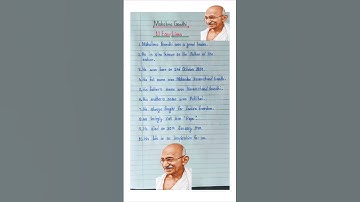 Mahatma Gandhi
10 Easy Lines
1. Mahatma Gandhi was a great leader.
2. He is also known as the Father of the
nation.
3. He was born on 2nd October 1869.
4. His full name was Mohandas Karamchand Gandhi.
5. His father's name was Karamchand Gandhi.
6. His mother's name was Putlibai.
7. He always fought for India's freedom.
8. We lovingly call him "Bapu".
9. He died on 30th January 1948.
10. His life is an inspiration for us.